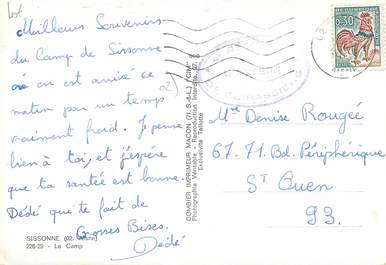 lot
Meilleurs Souvenirs
du Camp de Sissonne
où on est arrivé ce
matin par un temps
vraiment froid. Je pense
bien à toi, et j'espère
que ta santé est bonne.
Dédé que te fait de
Grosses Bises.
Dédé
02
SISSONNE (02. Aisne)
226-29 - Le Camp
COMBIER IMPRIMEUR MACON (71.S.-&-L.) "CIM"
Photographie Véritable - Reproduction Interdite
Exclusivité
0,30
Mme Denise Rougée
67.71.Bd. Périphérique
St Ouen
93.